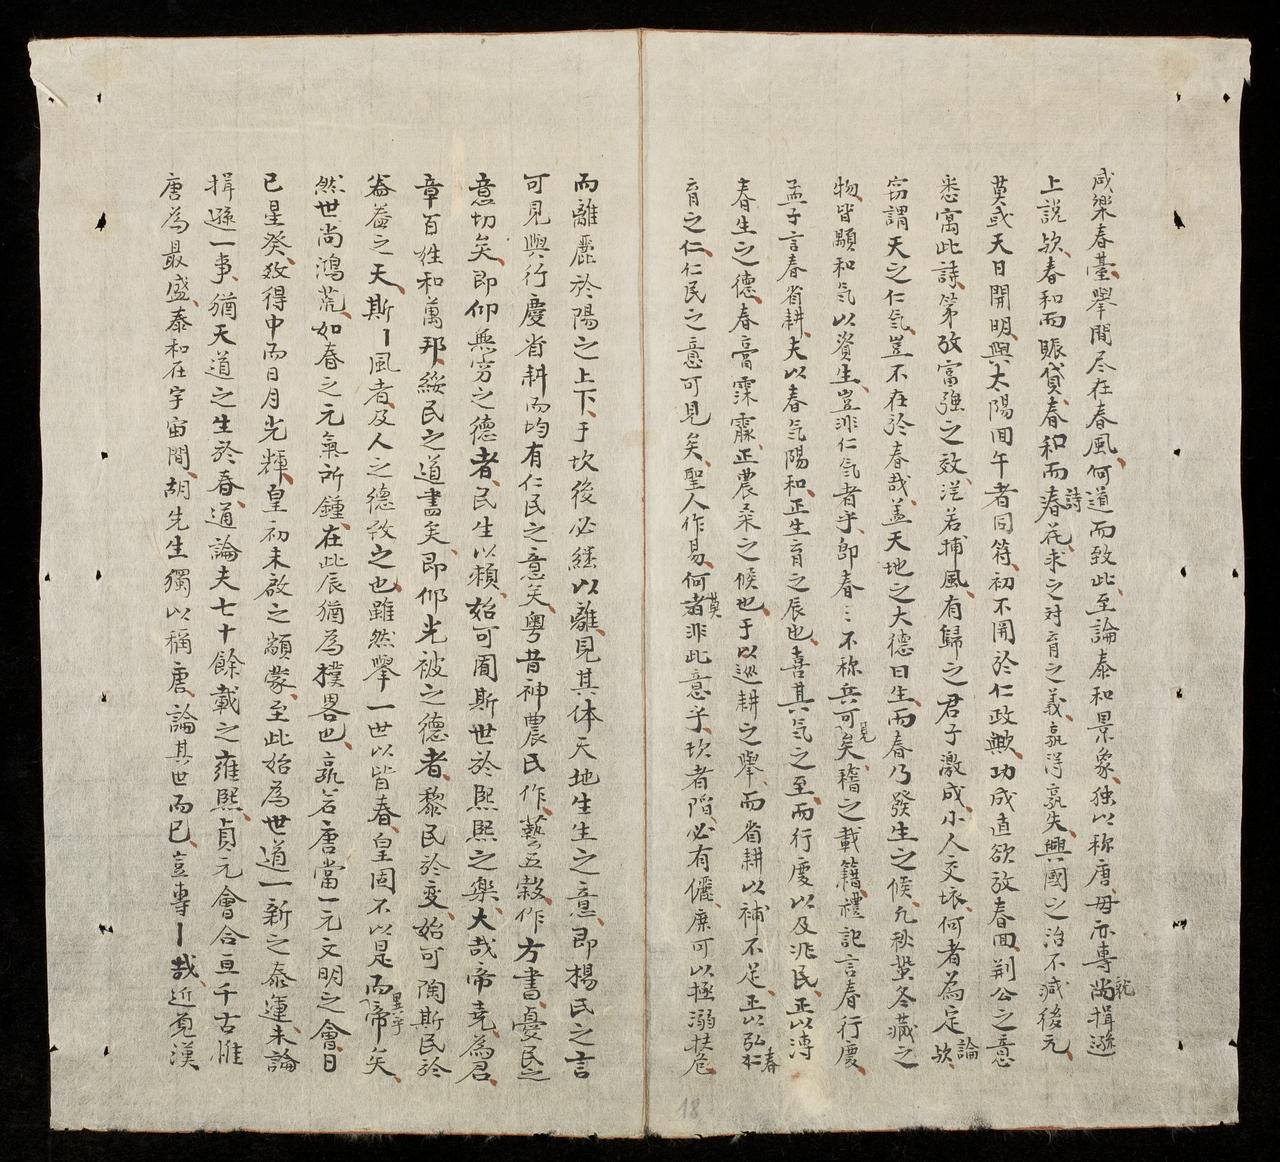 咸樂春臺舉間尽在春風何道而致此至論泰和景象独以称唐毋亦專尚就揖遜
上説欤春和而賑貸春和而詩春花求之对育之義孰得孰失興國之治不减後元
莫或天日開明與太陽囬午者同符初不開於仁政歟功成直欲放春囬荆公之意
悉寓此詩第攷富强之效茫若捕風有歸之君子激成小人交坏何者為定論欤
窃謂天之仁氣豈不在於春哉盖天地之大德曰生而春乃發生之候九秋蟄冬藏之
物皆顯和気以資生豈非仁気者乎即春〻不称兵可見矣稽之載籍禮記言春行慶
孟子言春省耕夫以春気陽和正生育之辰也喜其気之至而行慶以及兆民正以溥
春生之德春膏霂霡正農桑之候也于以巡耕之舉而省耕以補不足正以弘春仁
育之仁仁民之意可見矣聖人作易何莫非此意乎坎者陷必有儷庶可以拯溺扶危
而離麗於陽之上下于坎後必継以離見其体天地生生之意即楊民之言
可見與行慶省耕而均有仁民之意矣粤昔神農氏作藝五穀作方書憂民之
意切矣即仰無穷之德者民生以頼始可囿斯世於熙熙之樂大哉帝堯為君
章百姓和萬邦綏民之道書矣即仰光被之德者黎民於变始可陶斯民於
盎盎之天斯丨風者及人之德致之也雖然舉一世以皆春皇固不以是而異乎帝矣
然世尚鴻荒如春之元氣所鍾在此辰猶為撲畧也孰若唐當一元文明之會日
已星癸攷得中而日月光輝皇初未啟之顓蒙至此始為世道一新之泰運未論
揖遜一事猶天道之生於春通論夫七十餘載之雍熙貞元會合亘千古惟
唐為最盛泰和在宇宙間胡先生獨以稱唐論其世而已豈專丨哉近覓漢